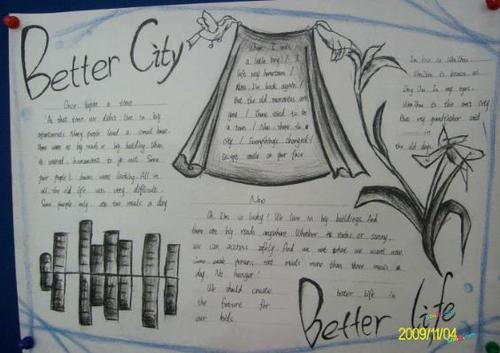 Better City
Once upon a time
At that time we didn't live in big
apartments. Many people lived a small house.
There were no big roads or big building. Often,
it
to go out. Some
poor people's houses were leaking. All in
all, the old life was very difficult.
Some people only ate two meals a day
When I was
a little boy / I
left my hometown /
Now I'm back again /
But the old memories are
gone / There used to be
a town / Now there is a
city / Everything's changed /
smile on your face
In this is WenZhou
WenZhou is
In my eyes,
WenZhou is the best City
that my grandfather said
in
the old days
Now
Oh I'm so lucky! We live in big buildings. And
there are big roads anywhere. Whether it rains or sunny,
we can access safely. And we eat what we want now.
person, eat meals more than three meals a
day. No hunger!
We should create better life in
the future for
our kids.
Better life
2009/11/04